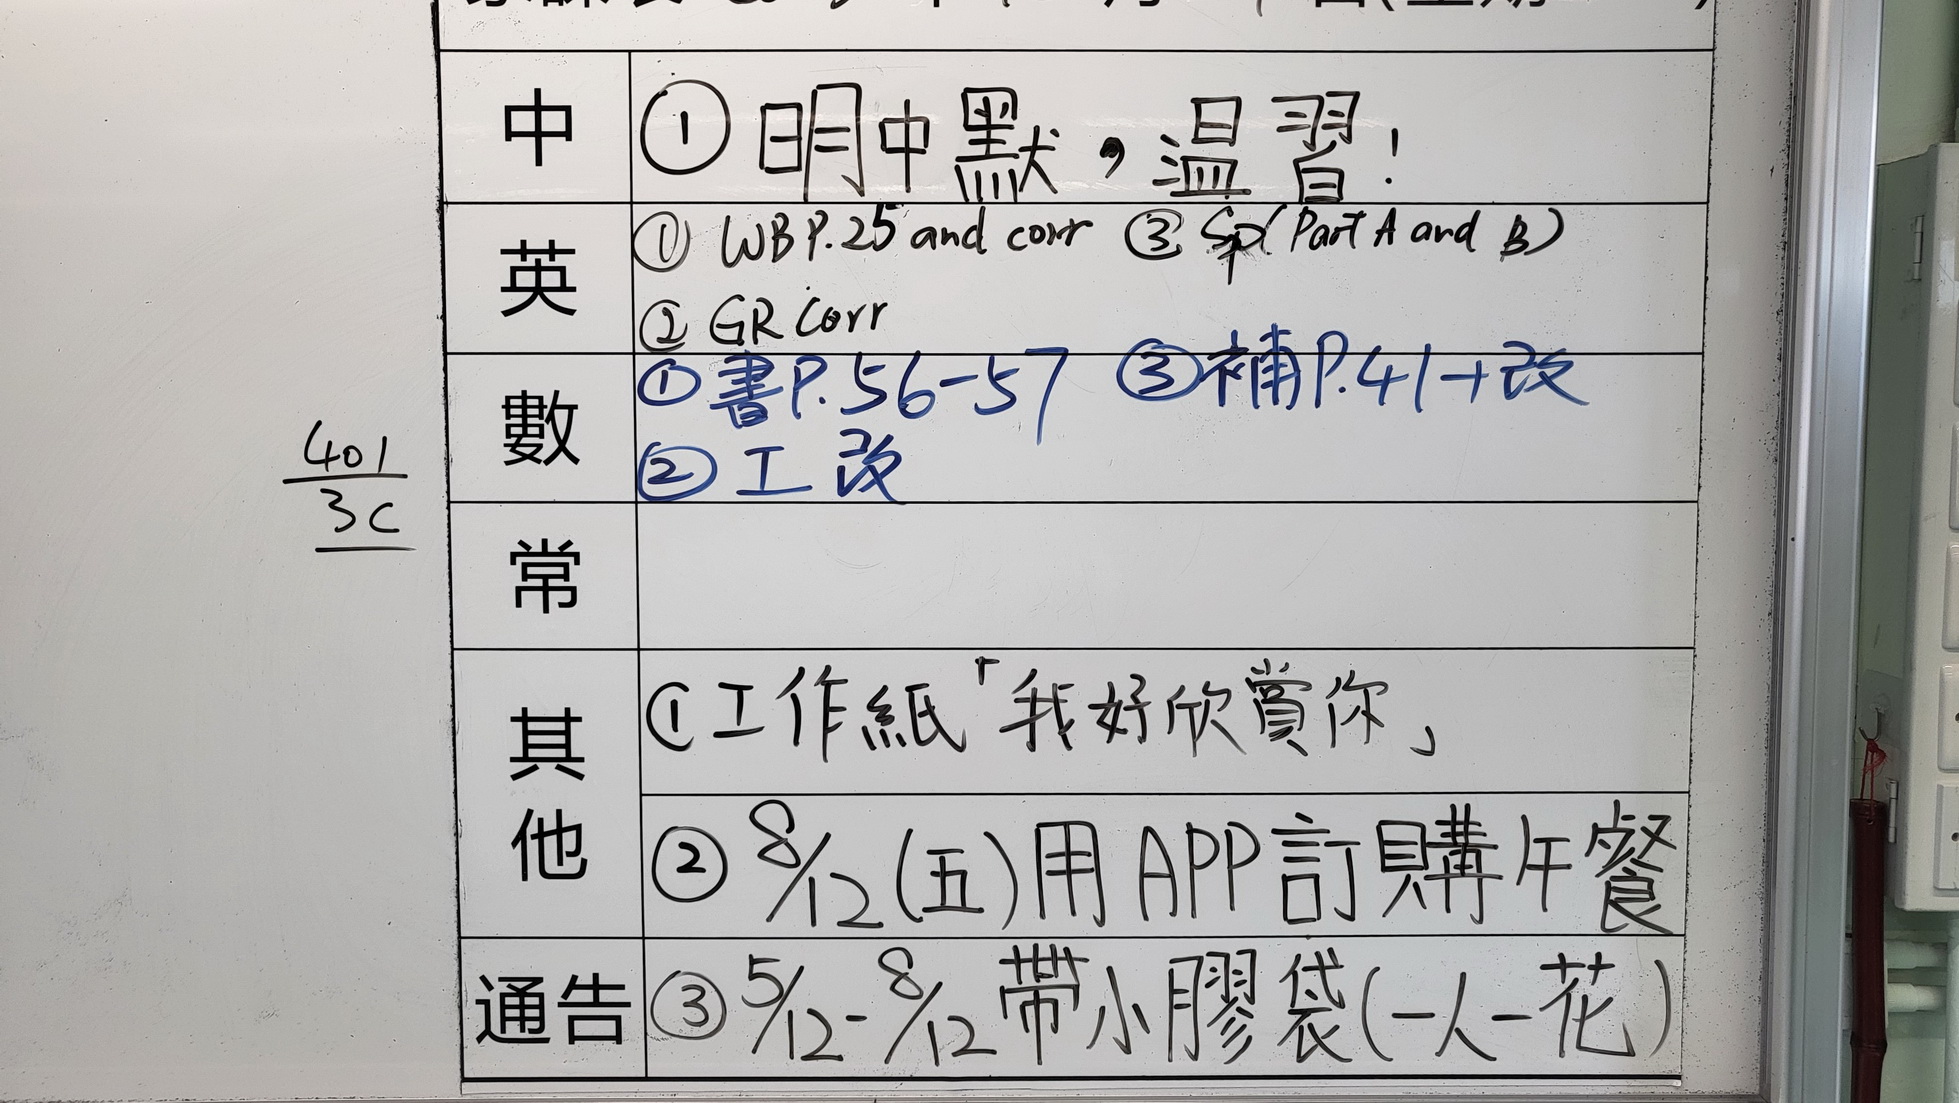 中 ① 明中默，温習！
英 ① WB P.25 and corr ③ Sp(Part A and B)
② GR Corr
數 ① 書P.56-57 ③ 補P.41+改
② 工改
401
3C
常
其他 ① 工作紙「我好欣賞你」
② 8/12(五)用APP訂購午餐
通告 ③ 5/12-8/12帶小膠袋(一人一花)